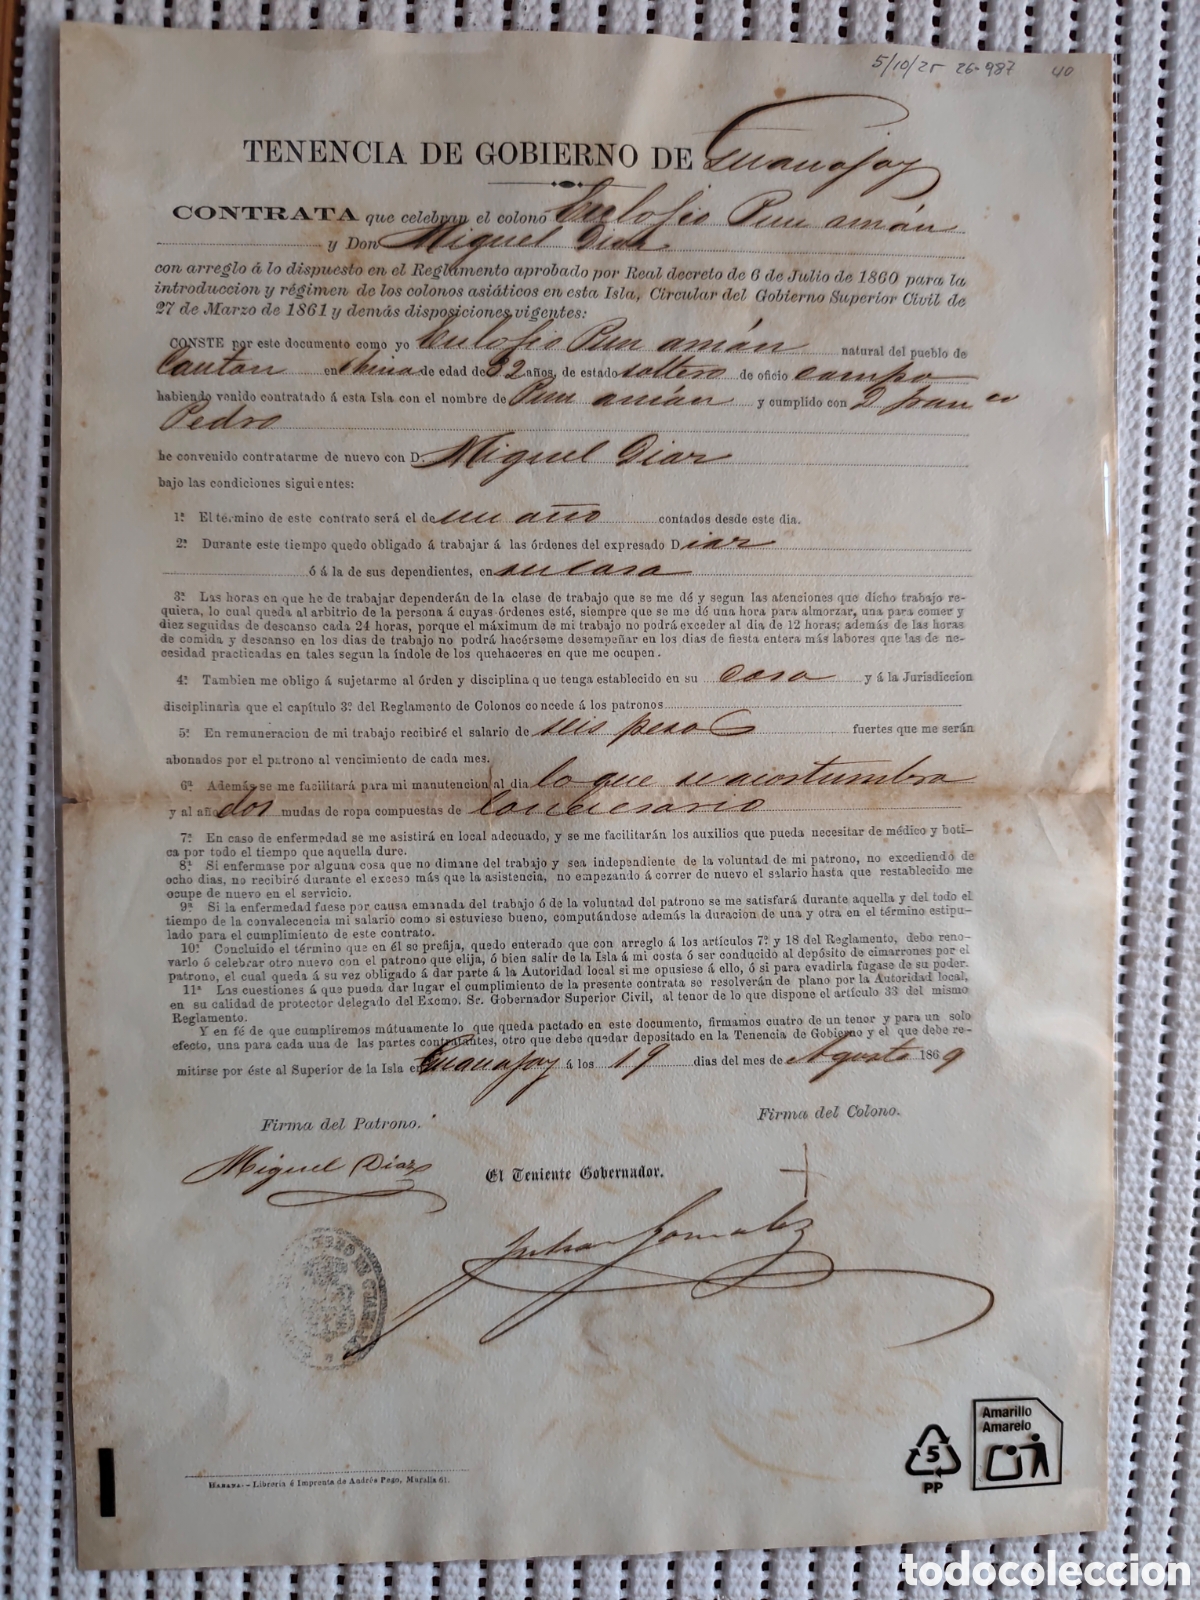 5/10/25 26-987 40
TENENCIA DE GOBIERNO DE Guanajay
CONTRATA que celebran el colono Eulofio Pun amán
y Don Miguel Diaz
con arreglo á lo dispuesto en el Reglamento aprobado por Real decreto de 6 de Julio de 1860 para la
introduccion y régimen de los colonos asiáticos en esta Isla, Circular del Gobierno Superior Civil de
27 de Marzo de 1861 y demás disposiciones vigentes:
CONSTE por este documento como yo Eulofio Pun amán natural del pueblo de
Cantan en China de edad de 32 años, de estado soltero de oficio campo
habiendo venido contratado á esta Isla con el nombre de Pun amán y cumplido con D Fran co
Pedro
he convenido contratarme de nuevo con D. Miguel Diaz
bajo las condiciones siguientes:
1ª El término de este contrato será el de un año contados desde este dia.
2ª Durante este tiempo quedo obligado á trabajar á las órdenes del expresado Diaz
ó á la de sus dependientes, en su casa
3ª Las horas en que he de trabajar dependerán de la clase de trabajo que se me dé y segun las atenciones que dicho trabajo re-
quiera, lo cual queda al arbitrio de la persona á cuyas órdenes esté, siempre que se me dé una hora para almorzar, una para comer y
diez seguidas de descanso cada 24 horas, porque el máximum de mi trabajo no podrá exceder al dia de 12 horas; además de las horas
de comida y descanso en los dias de trabajo no podrá hacérseme desempeñar en los dias de fiesta entera más labores que las de ne-
cesidad practicadas en tales segun la índole de los quehaceres en que me ocupen.
4ª Tambien me obligo á sujetarme al órden y disciplina que tenga establecido en su casa y á la Jurisdiccion
disciplinaria que el capítulo 3º del Reglamento de Colonos concede á los patronos
5ª En remuneracion de mi trabajo recibiré el salario de seis pesos fuertes que me serán
abonados por el patrono al vencimiento de cada mes.
6ª Además se me facilitará para mi manutencion al dia lo que se acostumbra
y al año dos mudas de ropa compuestas de lo necesario
7ª En caso de enfermedad se me asistirá en local adecuado, y se me facilitarán los auxilios que pueda necesitar de médico y boti-
ca por todo el tiempo que aquella dure.
8ª Si enfermase por alguna cosa que no dimane del trabajo y sea independiente de la voluntad de mi patrono, no excediendo de
ocho dias, no recibiré durante el exceso más que la asistencia, no empezando á correr de nuevo el salario hasta que restablecido me
ocupe de nuevo en el servicio.
9ª Si la enfermedad fuese por causa emanada del trabajo ó de la voluntad del patrono se me satisfará durante aquella y del todo el
tiempo de la convalecencia mi salario como si estuviese bueno, computándose además la duracion de una y otra en el término estipu-
lado para el cumplimiento de este contrato.
10ª Concluido el término que en él se prefija, quedo enterado que con arreglo á los artículos 7º y 18 del Reglamento, debo reno-
varlo ó celebrar otro nuevo con el patrono que elija, ó bien salir de la Isla á mi costa ó ser conducido al depósito de cimarrones por el
patrono, el cual queda á su vez obligado á dar parte á la Autoridad local si me opusiese á ello, ó si para evadirla fugase de su poder.
11ª Las cuestiones á que pueda dar lugar el cumplimiento de la presente contrata se resolverán de plano por la Autoridad local,
en su calidad de protector delegado del Excmo. Sr. Gobernador Superior Civil, al tenor de lo que dispone el artículo 33 del mismo
Reglamento.
Y en fé de que cumpliremos mútuamente lo que queda pactado en este documento, firmamos cuatro de un tenor y para un solo
efecto, una para cada una de las partes contratantes, otro que debe quedar depositado en la Tenencia de Gobierno y el que debe re-
mitirse por éste al Superior de la Isla en Guanajay á los 19 dias del mes de Agosto 1869
Firma del Patrono. Firma del Colono.
Miguel Diaz
El Teniente Gobernador.
Julian Gonzalez
Habana.-Librería é Imprenta de Andrés Pego, Muralla 61.
Amarillo
Amarelo
5
PP
todocoleccion